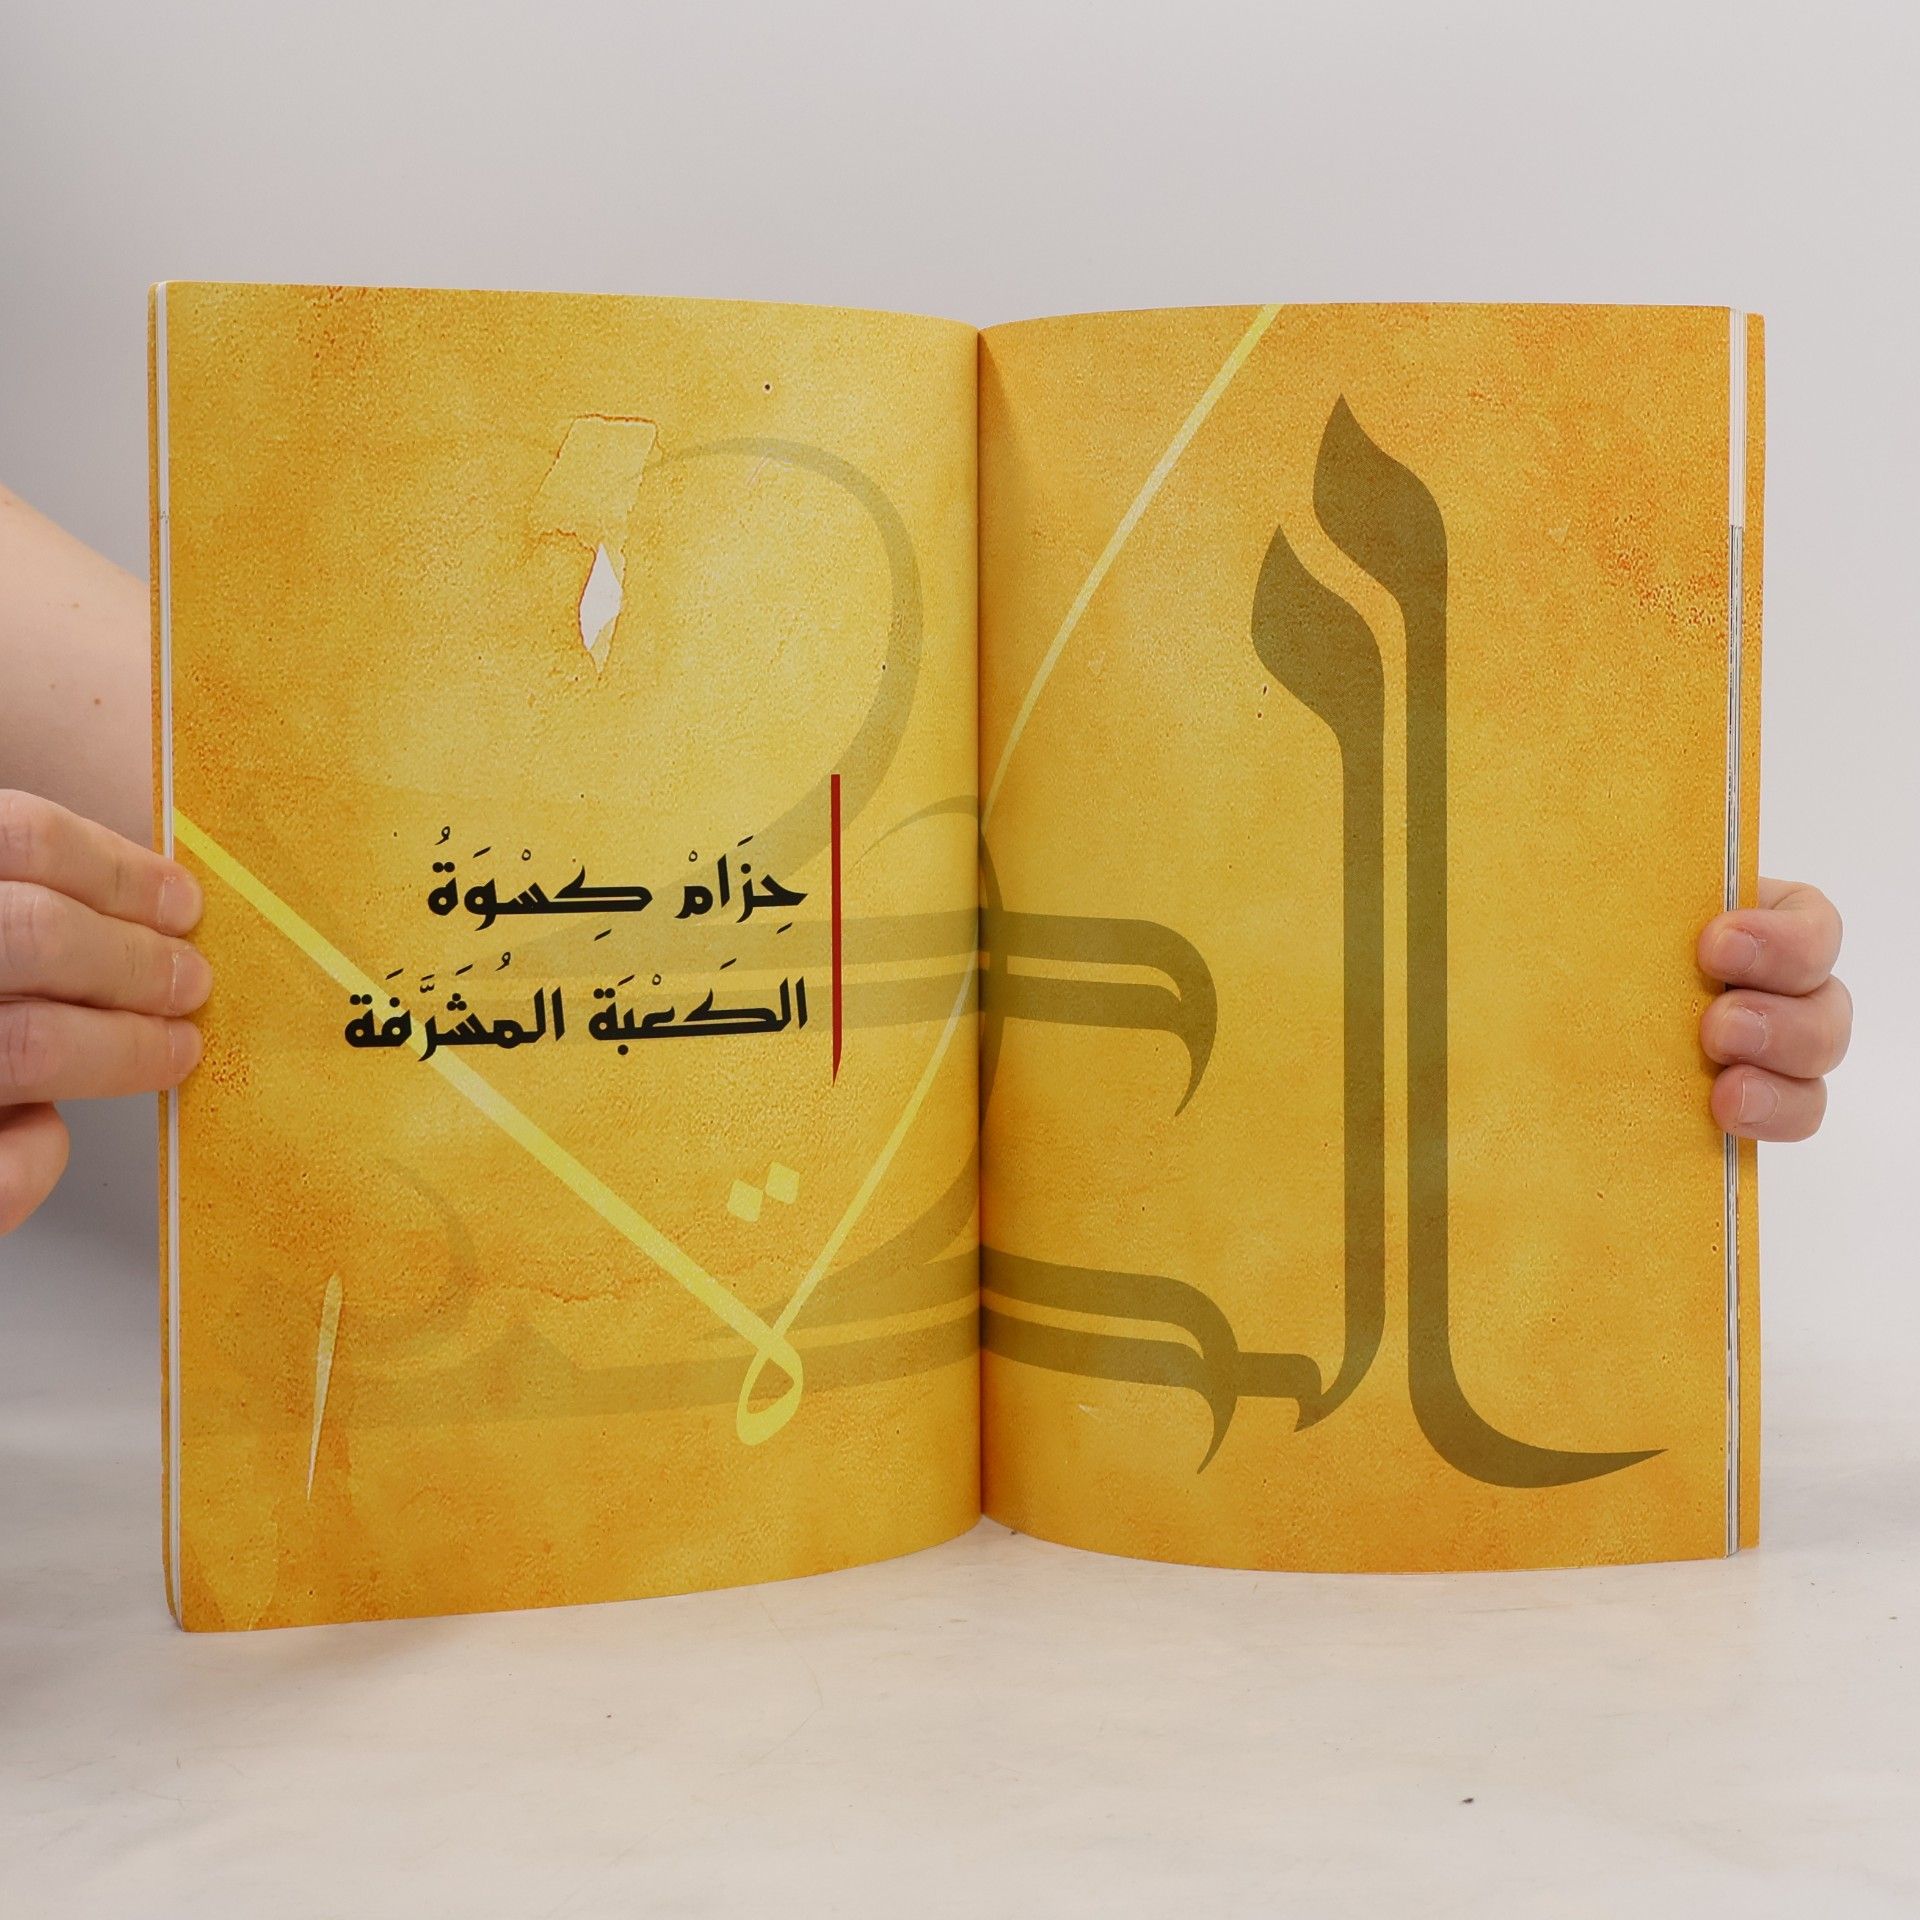 حِزَامْ كِسْوَةُ
الكَعْبَة المُشَرَّفَة